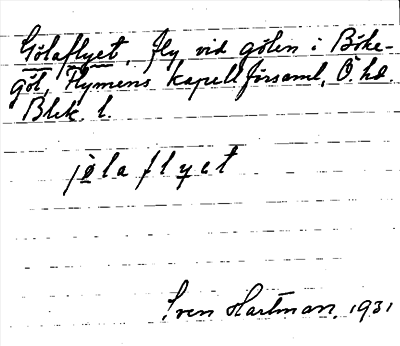 Gölaflyet, fly vid gölen i Böke-
göl, Flymens kapellförsaml, Ö. hd.
Blek. l.
jølaflyet
Sven Hartman, 1931